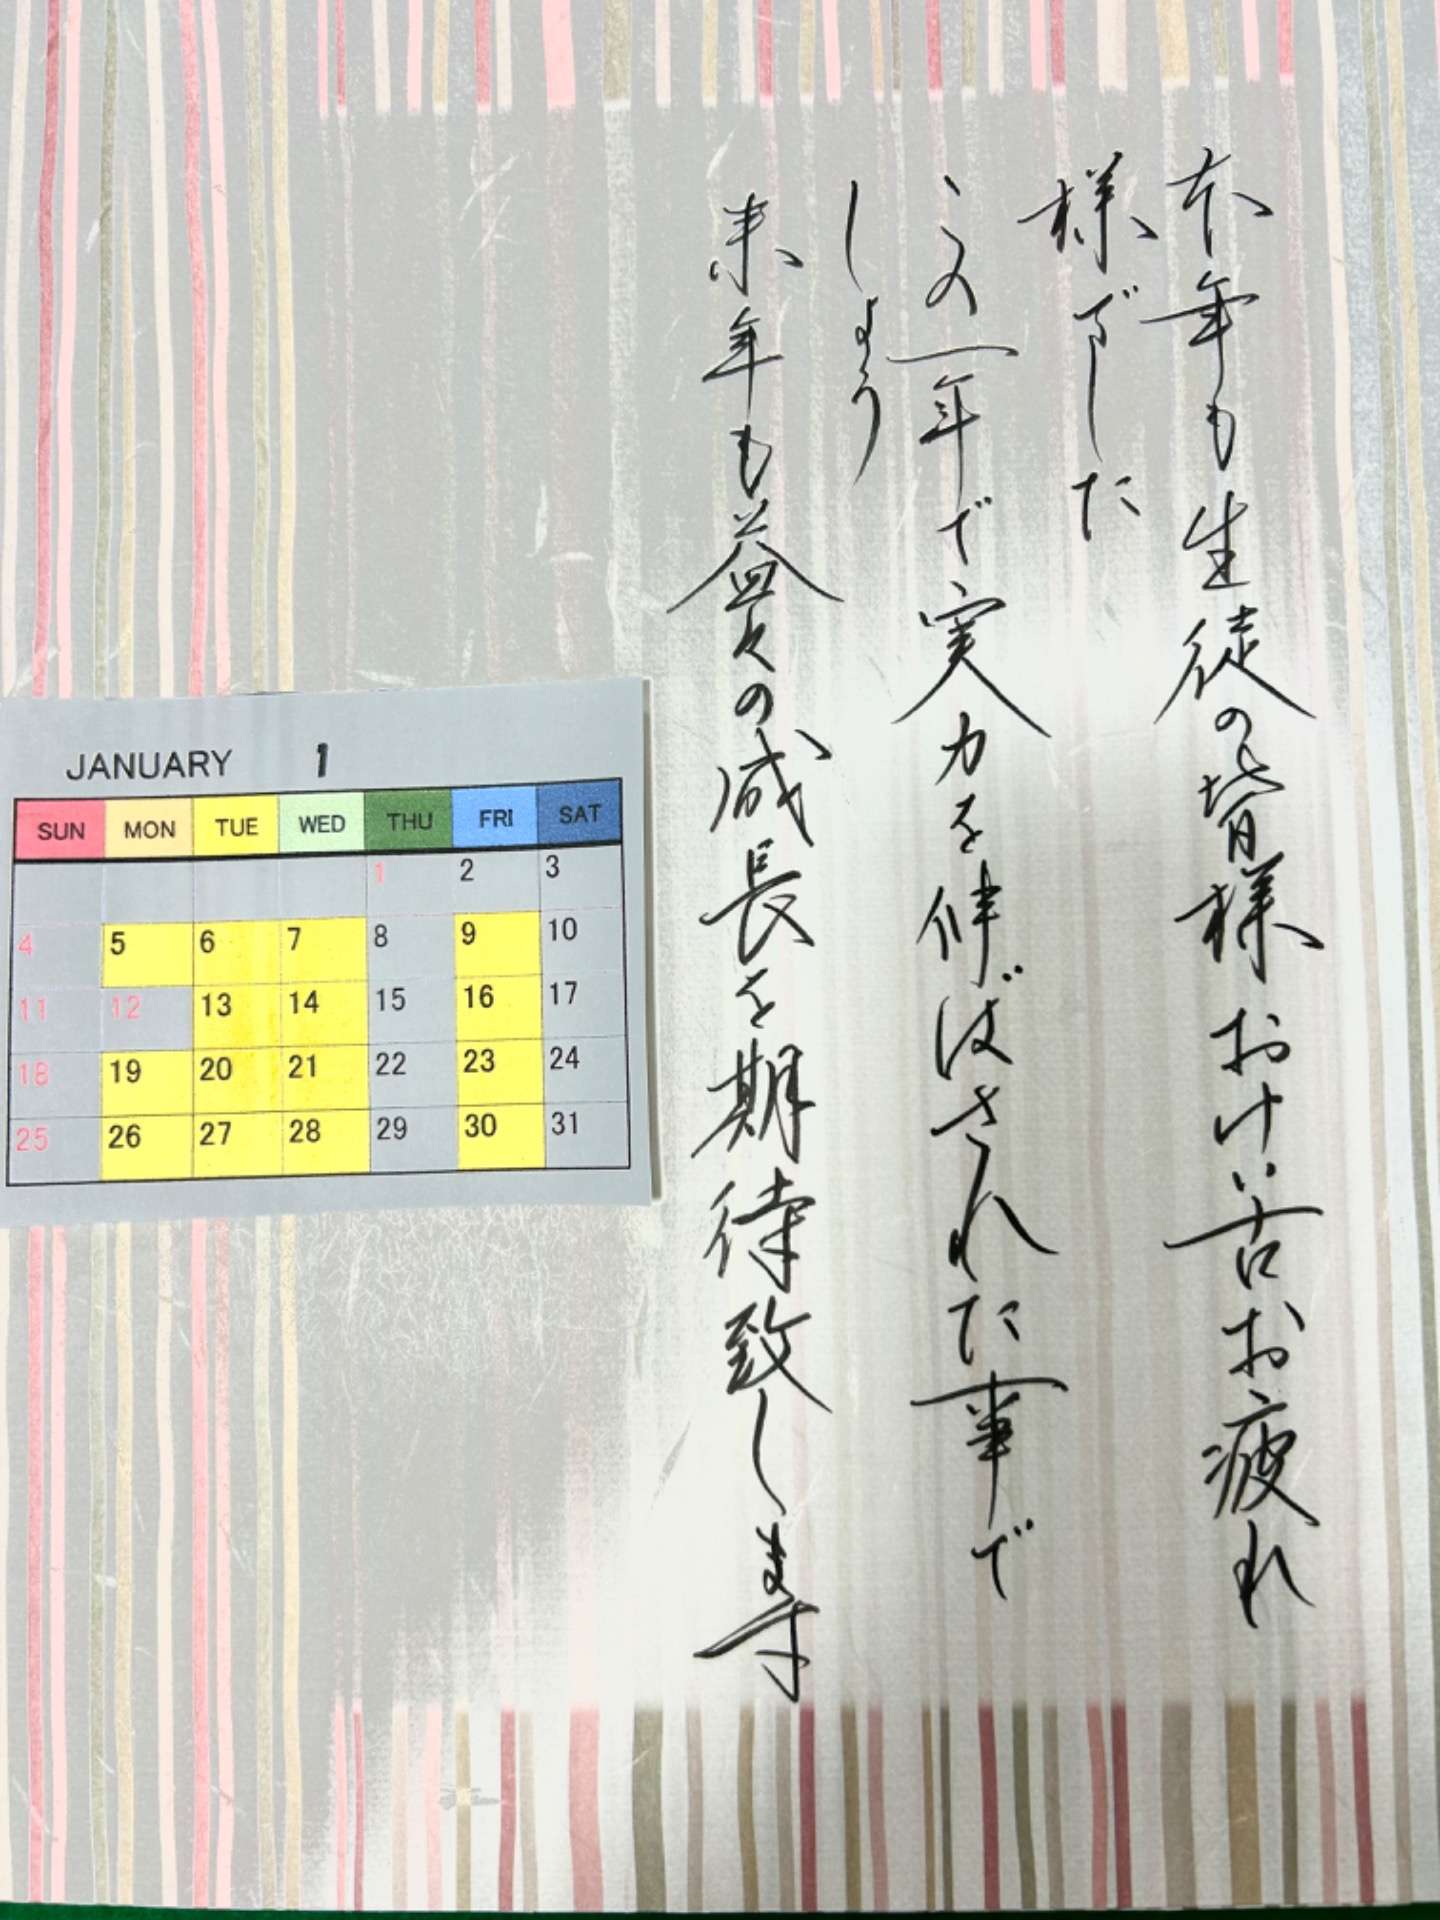 本年も生徒の皆様おけい古お疲れ
様でした
この一年で実力を伸ばされた事で
しょう
来年も益々の成長を期待致します
JANUARY 1
SUN MON TUE WED THU FRI SAT
1 2 3
4 5 6 7 8 9 10
11 12 13 14 15 16 17
18 19 20 21 22 23 24
25 26 27 28 29 30 31